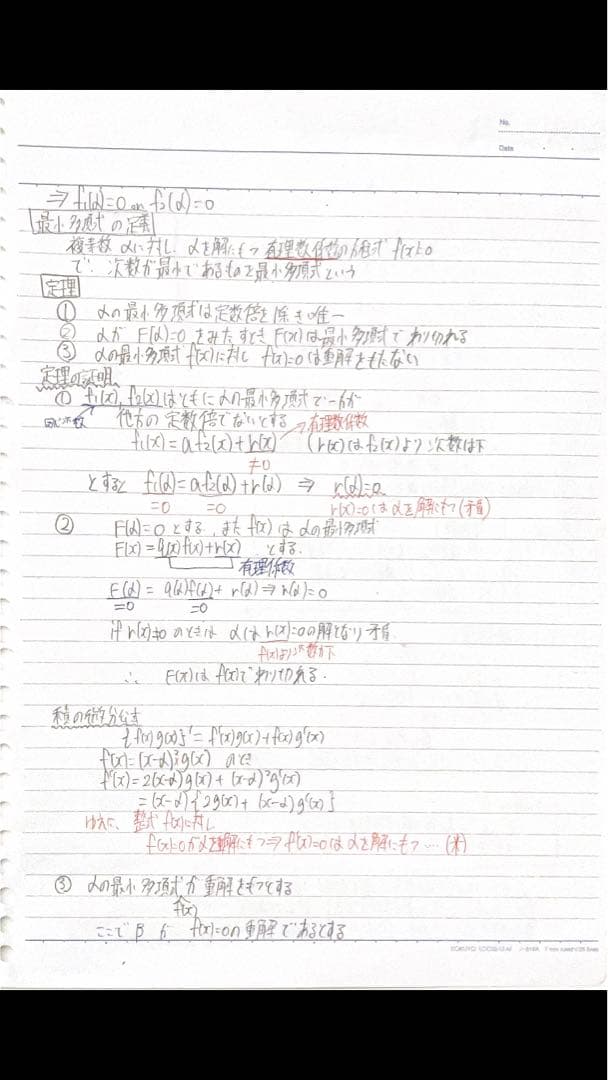 No.
Date
⇒ f₁(α)=0 or f₂(α)=0
最小多項式の定義
複素数αに対し、αを解にもつ有理数係数の方程式 f(x)=0
で、次数が最小であるものを最小多項式という
定理
① αの最小多項式は定数倍を除き唯一
② αが F(α)=0 をみたすとき F(x)は最小多項式でわり切れる
③ αの最小多項式f(x)に対し f(x)=0は重解をもたない
定理の証明
① f₁(x), f₂(x)はともにαの最小多項式で一方が
同じ次数
他方の定数倍でないとする
有理数係数
f₁(x)=af₂(x)+r(x) (r(x)はf₂(x)より次数は下
≠0
とすると f₁(α)=af₂(α)+r(α) ⇒ r(α)=0
=0 =0 r(x)=0はαを解にもつ(矛盾)
② F(α)=0 とする、また f(x)はαの最小多項式
F(x)=q(x)f(x)+r(x) とする.
有理係数
F(α) = q(α)f(α)+ r(α)⇒r(α)=0
=0 =0
if r(x)≠0 のときは αはr(x)=0の解となり矛盾
f(x)より次数が下
∴ F(x)は f(x)でわり切れる.
積の微分公式
{f(x)g(x)}'= f'(x)g(x)+f(x)g'(x)
f(x)=(x-α)²g(x) のとき
f'(x)=2(x-α)g(x) + (x-α)²g'(x)
=(x-α){2g(x) + (x-α)g'(x)}
ゆえに、整式f(x)に対し
f(x)=0がαを重解にもつ⇒f'(x)=0はαを解にもつ…(※)
③ αの最小多項式が重解をもつとする
f(x)
ここでβが f(x)=0の重解であるとする